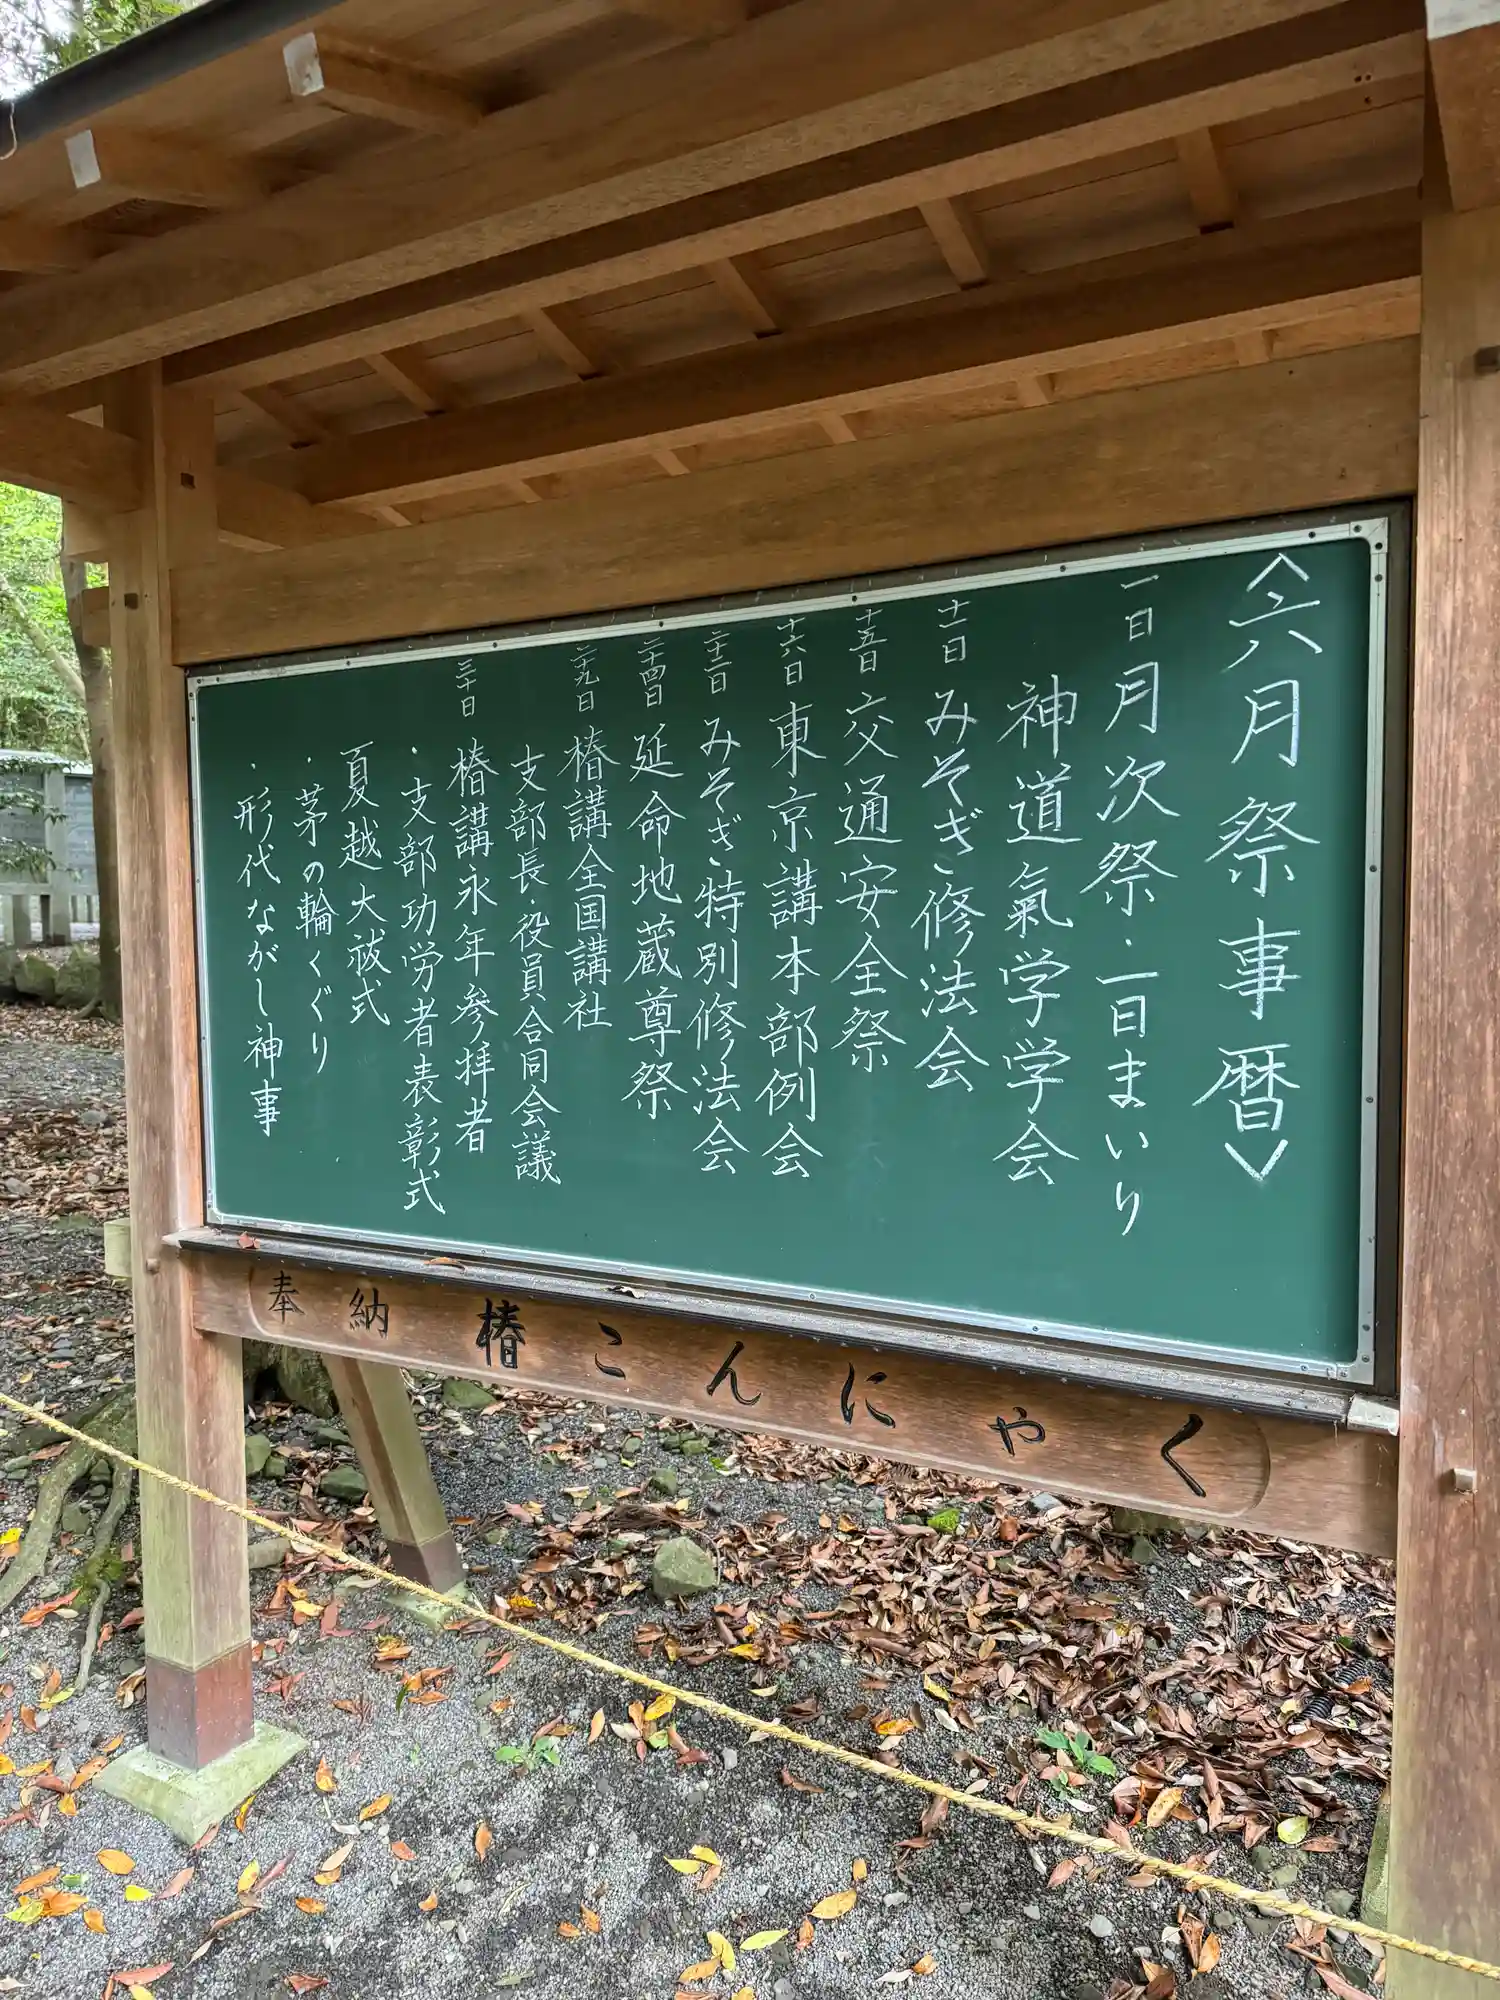 〈六月祭事暦〉
一日 月次祭・一日まいり
神道氣学学会
十一日 みそぎ修法会
十五日 交通安全祭
十六日 東京講本部例会
二十二日 みそぎ特別修法会
二十四日 延命地蔵尊祭
二十九日 椿講全国講社
支部長・役員合同会議
三十日 椿講永年参拝者
・支部功労者表彰式
夏越大祓式
・茅の輪くぐり
・形代ながし神事
奉納 椿こんにゃく